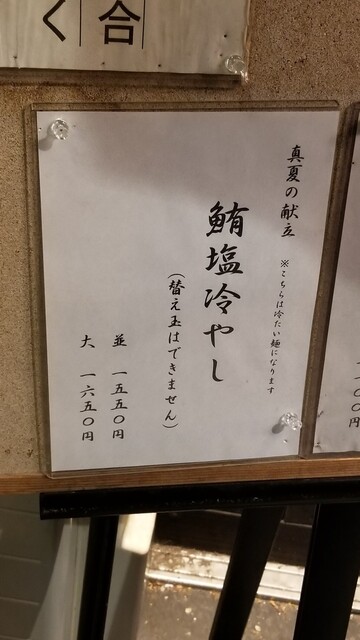 合
く
真夏の献立
※こちらは冷たい麺になります
鮪塩冷やし
(替え玉はできません)
並 一五五〇円
大 一六五〇円
〇〇円